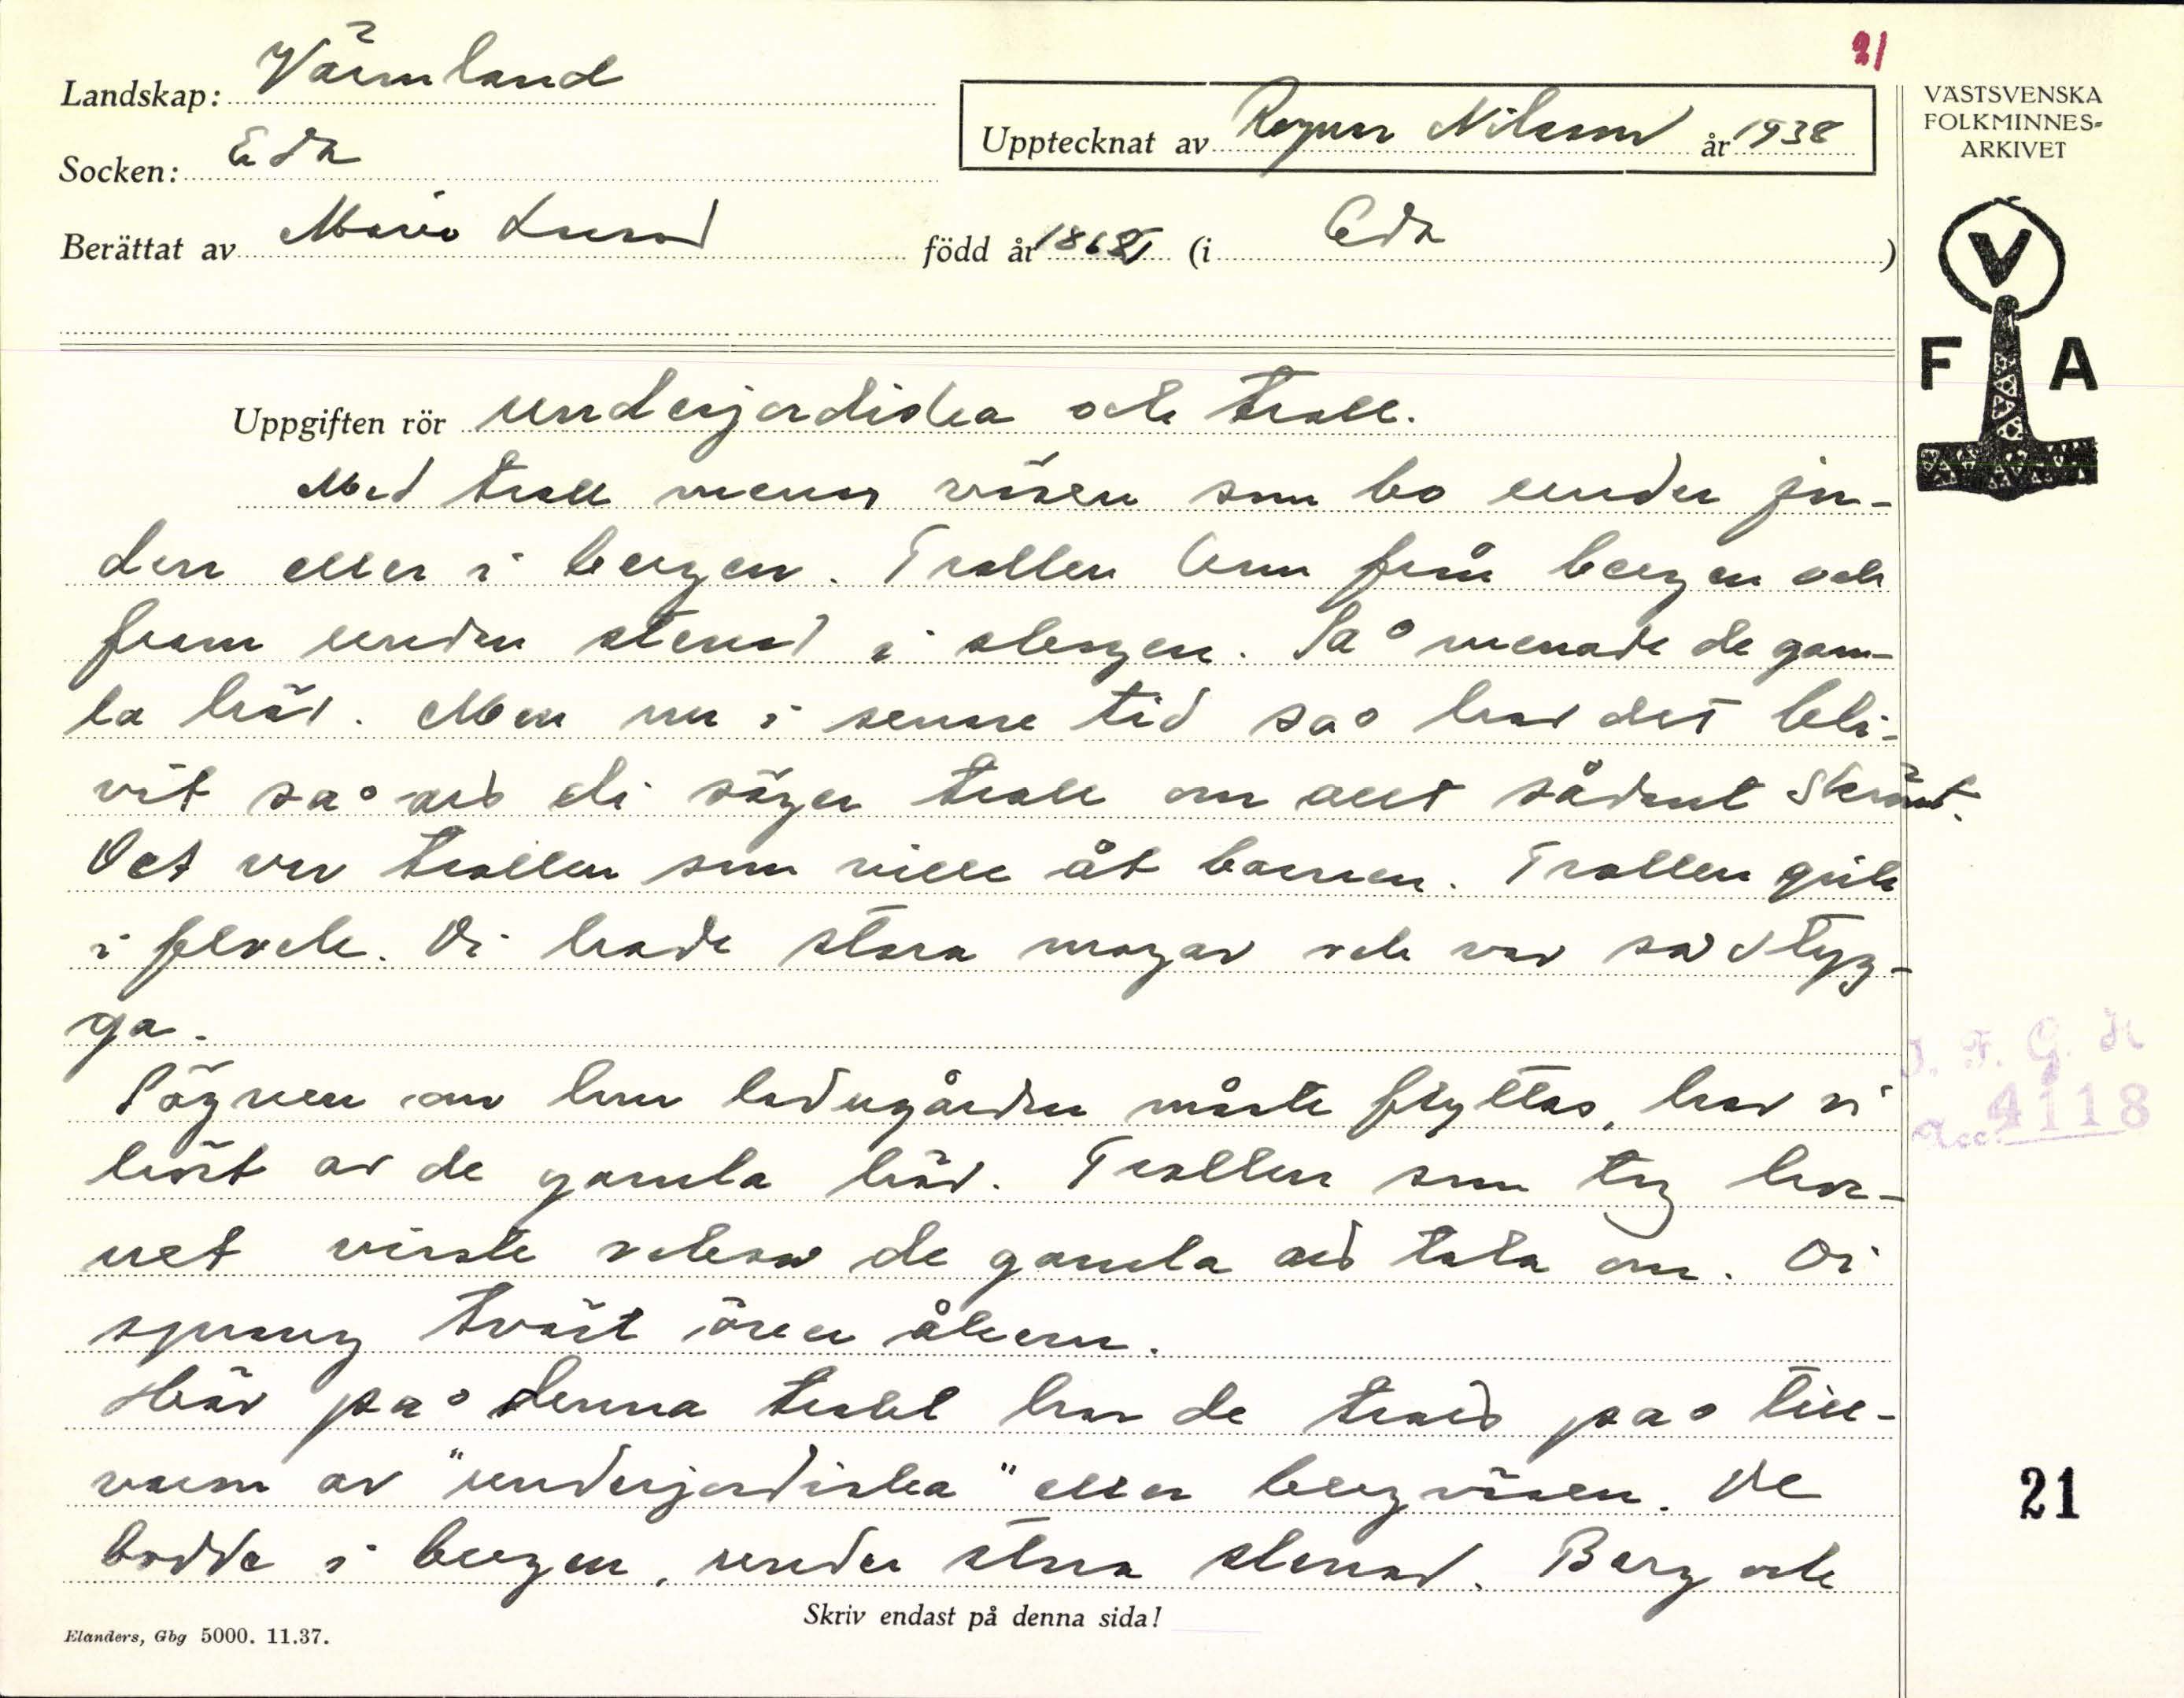 21
Landskap: Värmland
Socken: Eda
Upptecknat av Ragnar Nilsson år 1938
Berättat av Maria Lund
född år 186 (i Eda)
VÄSTSVENSKA
FOLKMINNES-
ARKIVET
V
F A
Uppgiften rör underjordiska och troll.
Med troll menas väsen som bo under jor-
den eller i bergen. Trollen kom från bergen och
fram under stenar i skogen. Så menade de gam-
la här. Men nu i senare tid så har det bli-
vit så att di säger troll om allt sådant skrömt.
Det var trollen som ville åt barnen. Trollen gick
i flock. Di hade stora magar och var så styg-
ga.
Sägnen om hur ladugården måste flyttas, har vi
hört av de gamla här. Trollen som tog bar-
net visste också de gamla att tala om. Di
sprang tvärt över åkern.
Här på denna trakt har de trott på till-
varon av "underjordiska" eller bergväsen. De
bodde i bergen, under stora stenar. Berg och
I. F. G. H
Acc. 4118
21
Skriv endast på denna sida!
Elanders, Gbg 5000. 11.37.